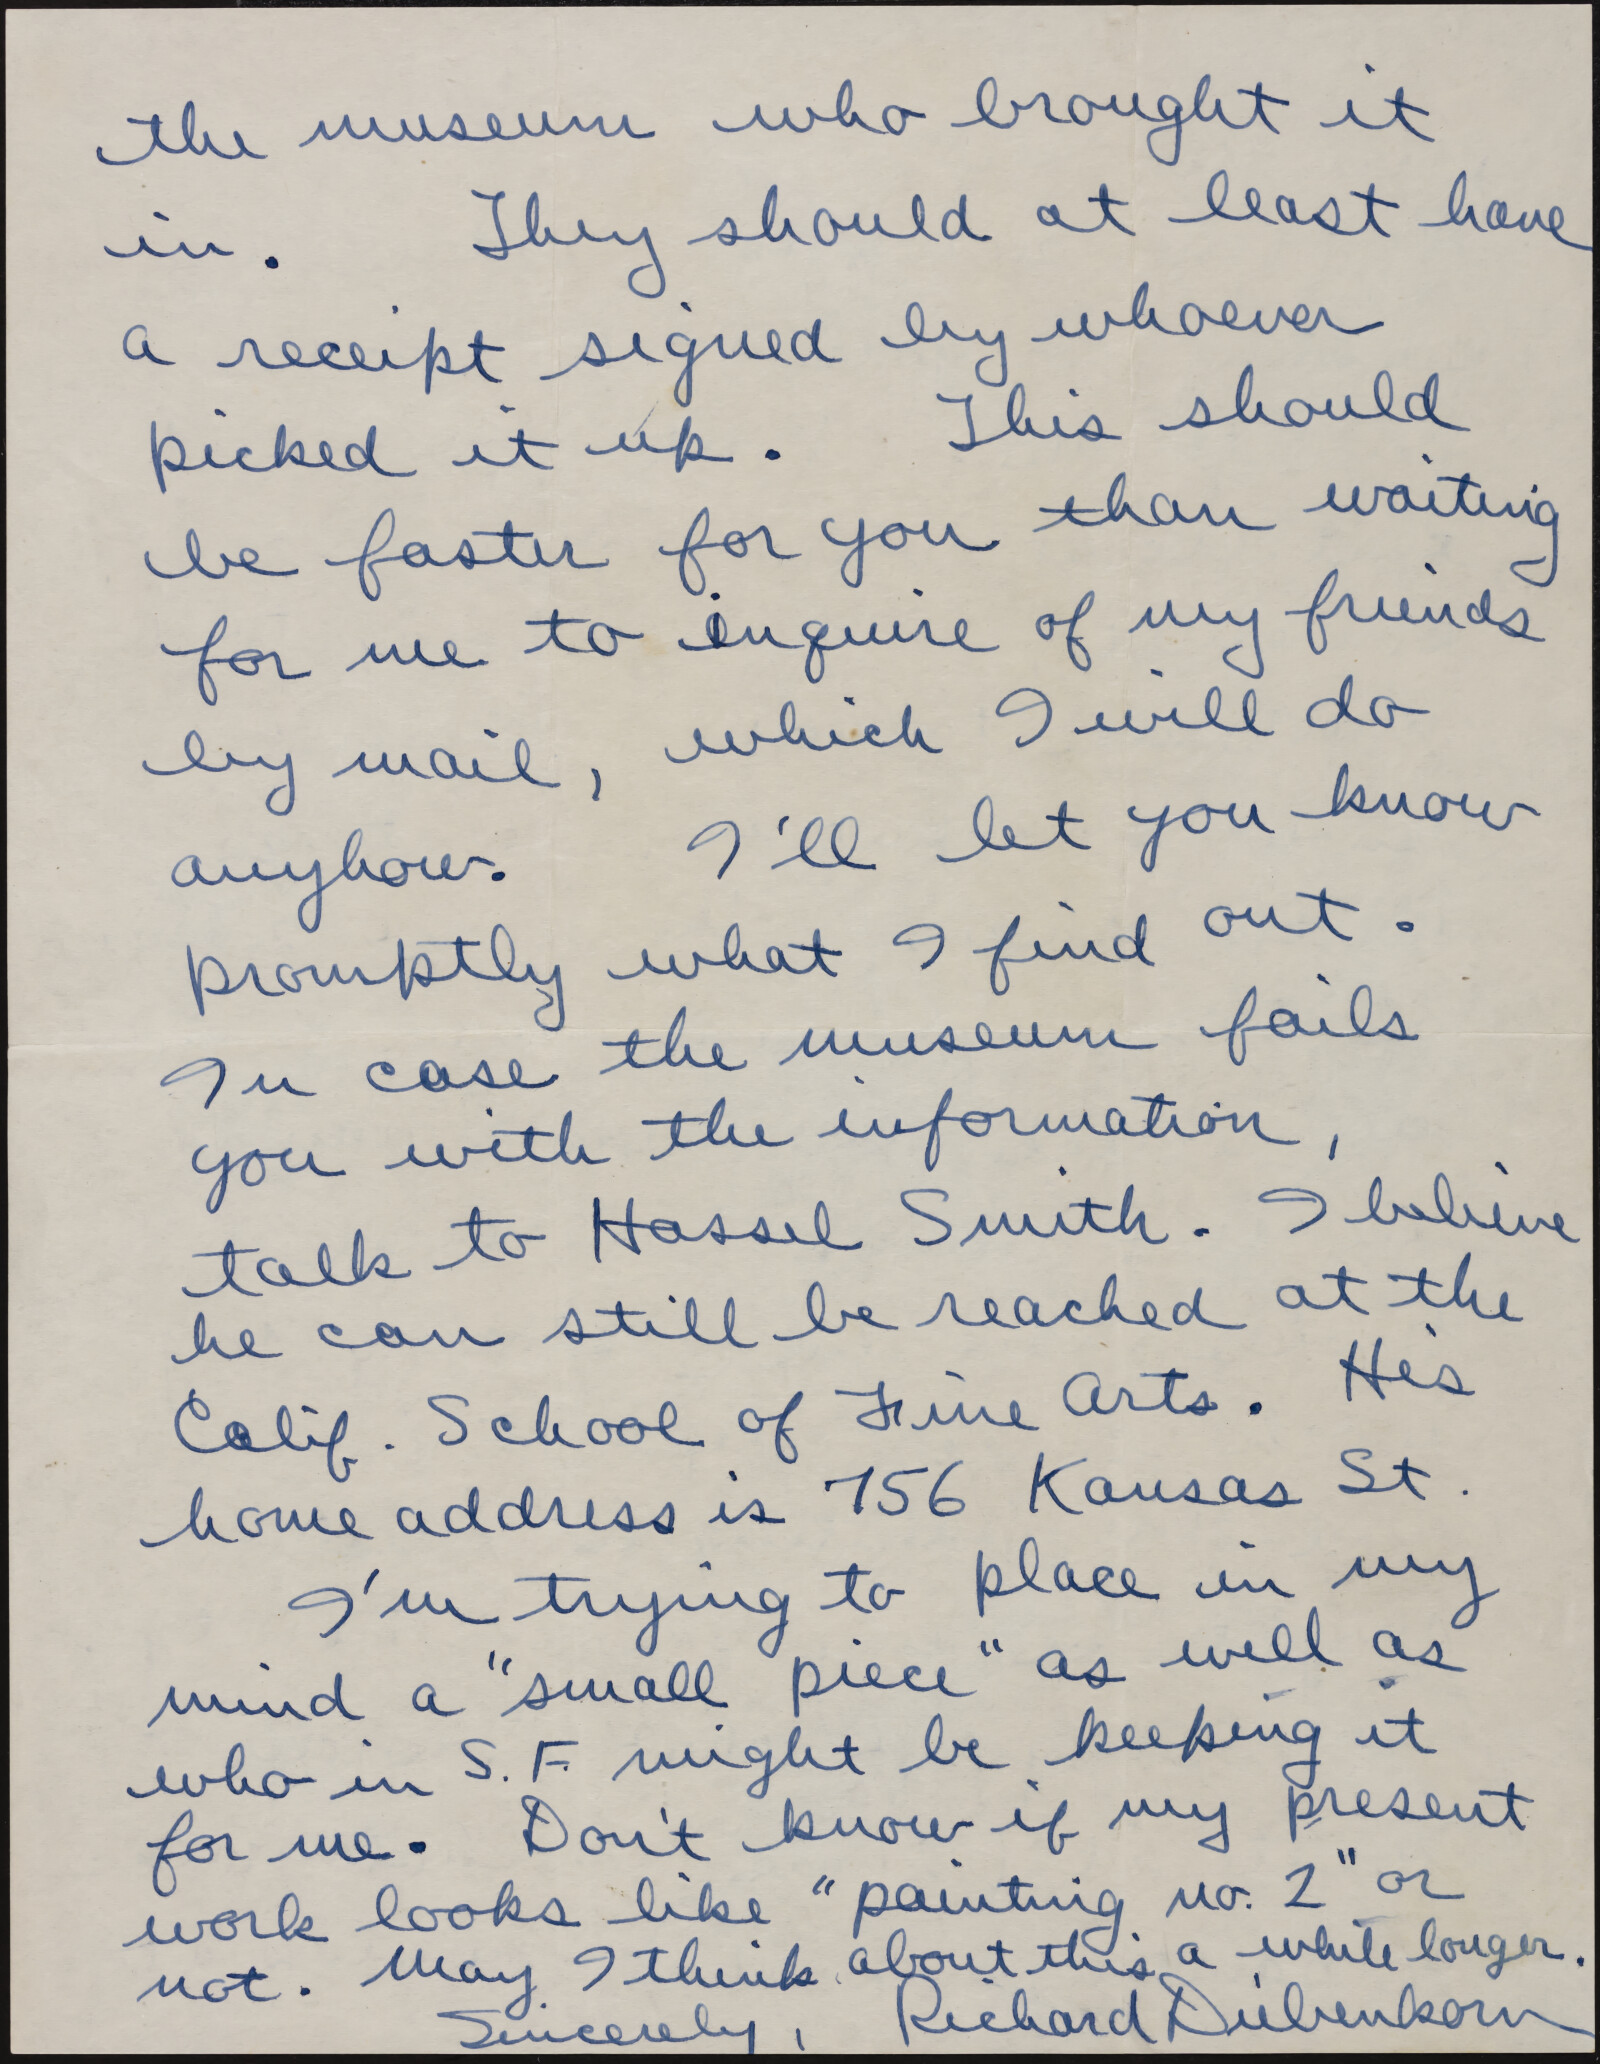 the museum who brought it
in. They should at least have
a receipt signed by whoever
picked it up. This should
be faster for you than waiting
for me to inquire of my friends
by mail, which I will do
anyhow. I'll let you know
promptly what I find out.
In case the museum fails
you with the information,
talk to Hassel Smith. I believe
he can still be reached at the
Calif. School of Fine Arts. His
home address is 756 Kansas St.
I'm trying to place in my
mind a "small piece" as well as
who in S.F. might be keeping it
for me. Don't know if my present
work looks like "painting no. 2" or
not. May I think about this a while longer.
Sincerely, Richard Diebenkorn